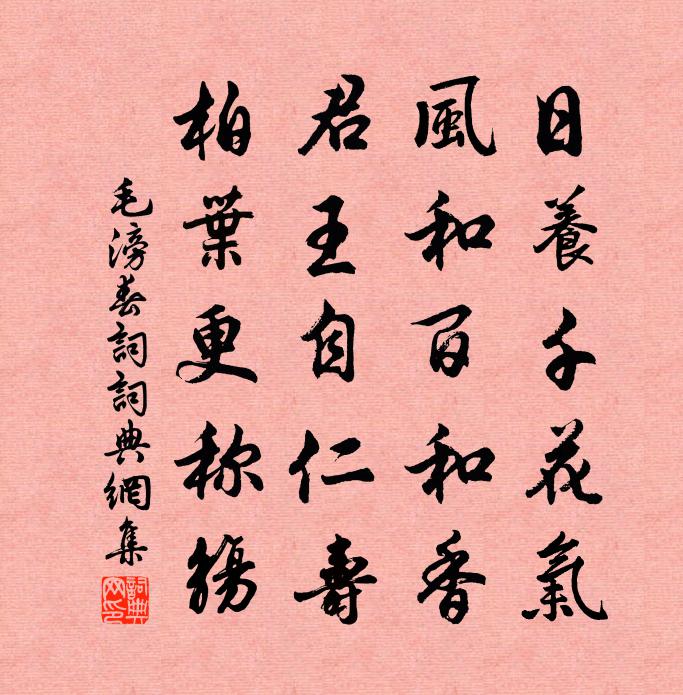 日養千花氣
風和百和香
君王自仁壽
柏葉更称觴
毛滂春詞詞典網集
詞典網印